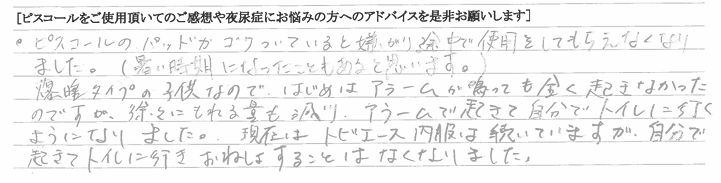 [ピスコールをご使用頂いてのご感想や夜尿症にお悩みの方へのアドバイスを是非お願いします]
・ピスコールの パッドが ゴワついていると嫌がり 途中で使用をしてもらえなくなり
ました。(暑い時期になったこともあると思います。)
爆睡タイプの子供なので、はじめは アラームが鳴っても全く起きなかった
のですが、徐々にもれる量も減り、アラームで起きて自分でトイレに行く
ようになりました。現在は トビエース内服は続いていますが、自分で
起きてトイレに行き おねしょすることは なくなりました。